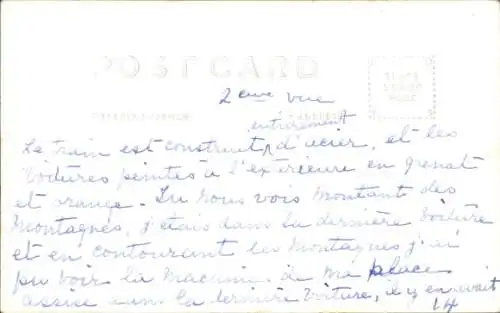 POST CARD
PLACE
STAMP
HERE
CORRESPONDENCE
ADDRESS
2eme vue
entièrement
Le train est construit d'acier, et les
voitures peintes à l'extérieure en grenat
et orange. Tu nous vois montant des
Montagnes, j'étais dans la dernière voiture
et en contournant les Montagnes j'ai
pu voir la Machine de ma place
assise dans la dernière voiture, il y en avait
14